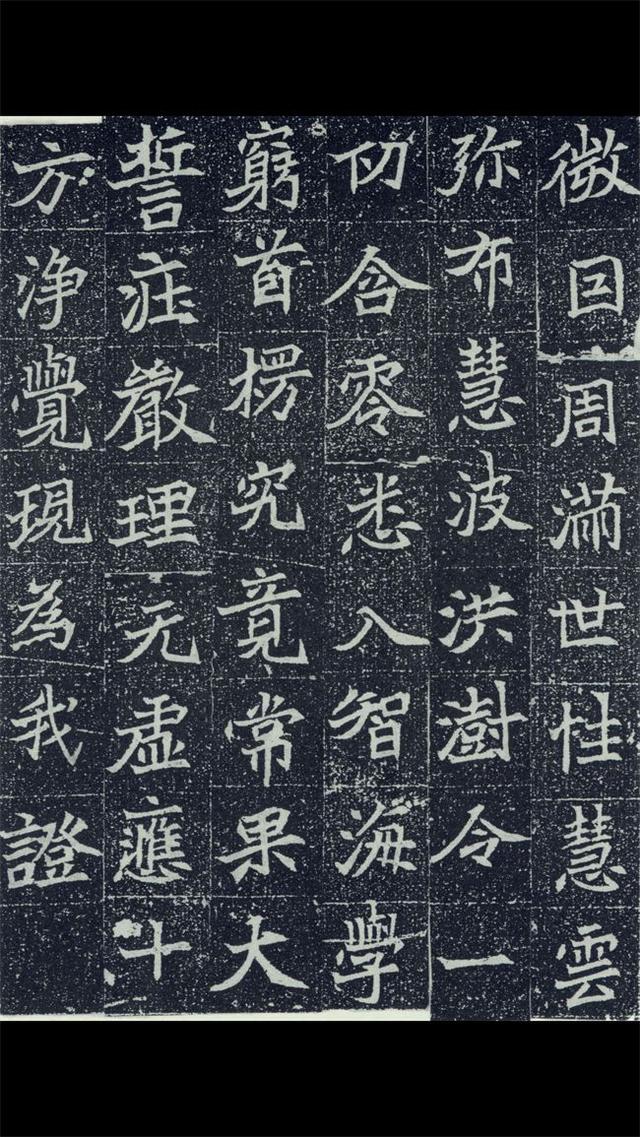 微囙周滿世性慧雲
弥布慧波洪澍令一
切含零悉入智海學
窮首楞究竟常果大
誓庄嚴理无虛應十
方浄覺現為我證